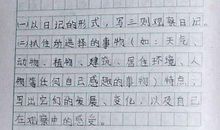 (一)以日记的形式，写三则观察日记。
(二)抓住所选择的事物（如：天气、
动物、植物、建筑、居住环境、人
物等任何自己感趣的事物）特点，
写出它们的发展、变化，以及自己
在观察中的感受。